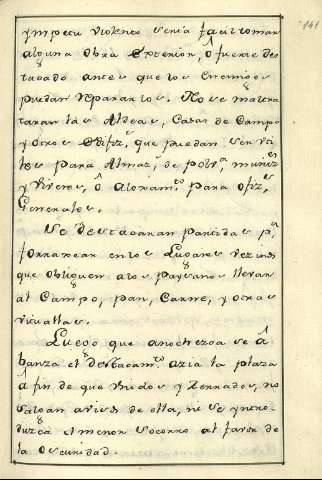 141
y impetu violento seria facil tomar
alguna obra Exterior, ô fuerte des
tacado antes que los Enemigos
puedan repararlos. No se maltra
taran las Aldeas, Casas de Campo
y otros Edifiz.s que puedan ser vti
les para Almaz.s de Polv.a muniz.es
y Viveres, ô Aloxam.to para Ofiz.s
Generales.
Se destacaran partidas p.a
forraxear en los Lugares vezinos
que obliguen a los Paysanos llevar
al Campo, pan, Carne, y otras
vituallas.
Luego que anochezca se â
banza el destacam.to azia la plaza
â fin de que vnidos y Zerrados, no
salgan avisos de ella, ni se yntro
duzca el menor socorro al favor de
la Oscuridad.